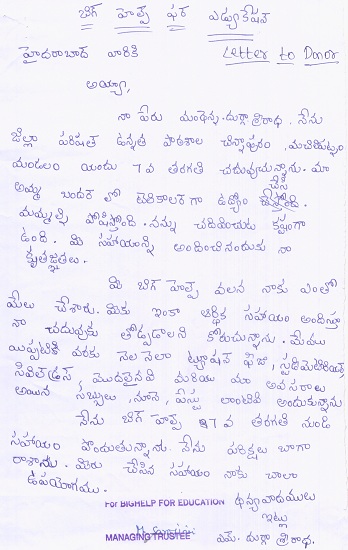 బిగ్ హెల్ప్ ఫర్ ఎడ్యుకేషన్
హైదరాబాద్ వారికి Letter to Donor
అయ్యా,
నా పేరు మంథెన్న. దుర్గా శ్రీరాధ. నేను
జిల్లా పరిషత్ ఉన్నత పాఠశాల చిన్నాపురం, మచిలీపట్నం
మండలం యందు 7వ తరగతి చదువుచున్నాను. మా
అమ్మ బందర్ లో టెలికాలర్ గా ఉద్యోగం చేస్తోంది.
మమ్మల్ని పోషిస్తోంది. నన్ను చదివించుట కష్టంగా
ఉంది. మీ సహాయాన్ని అందించినందుకు నా
కృతజ్ఞతలు.
మీ బిగ్ హెల్ప్ వలన నాకు ఎంతో
మేలు చేశారు. మీకు ఇంకా ఆర్థిక సహాయం అందిస్తూ
నా చదువుకు తోడ్పడాలని కోరుచున్నాను. మేము
యిప్పటికి వరకు నెలనెలా ట్యూషన్ ఫీజు, స్టడీమెటీరియల్స్,
సివిల్ డ్రస్, మొదలైనవి మరియు మా అవసరాలు
అయిన సబ్బులు, నూనె, పేస్టు లాంటివి అందుకున్నాను
నేను బిగ్ హెల్ప్ 7వ తరగతి నుండి
సహాయం పొందుతున్నాను. నేను పరీక్షలు బాగా
రాశాను. మీరు చేసిన సహాయం నాకు చాలా
ఉపయోగము.
For BIGHELP FOR EDUCATION ధన్యవాదములు
ఇట్లు
MANAGING TRUSTEE ఎమ్. దుర్గా శ్రీరాధ.